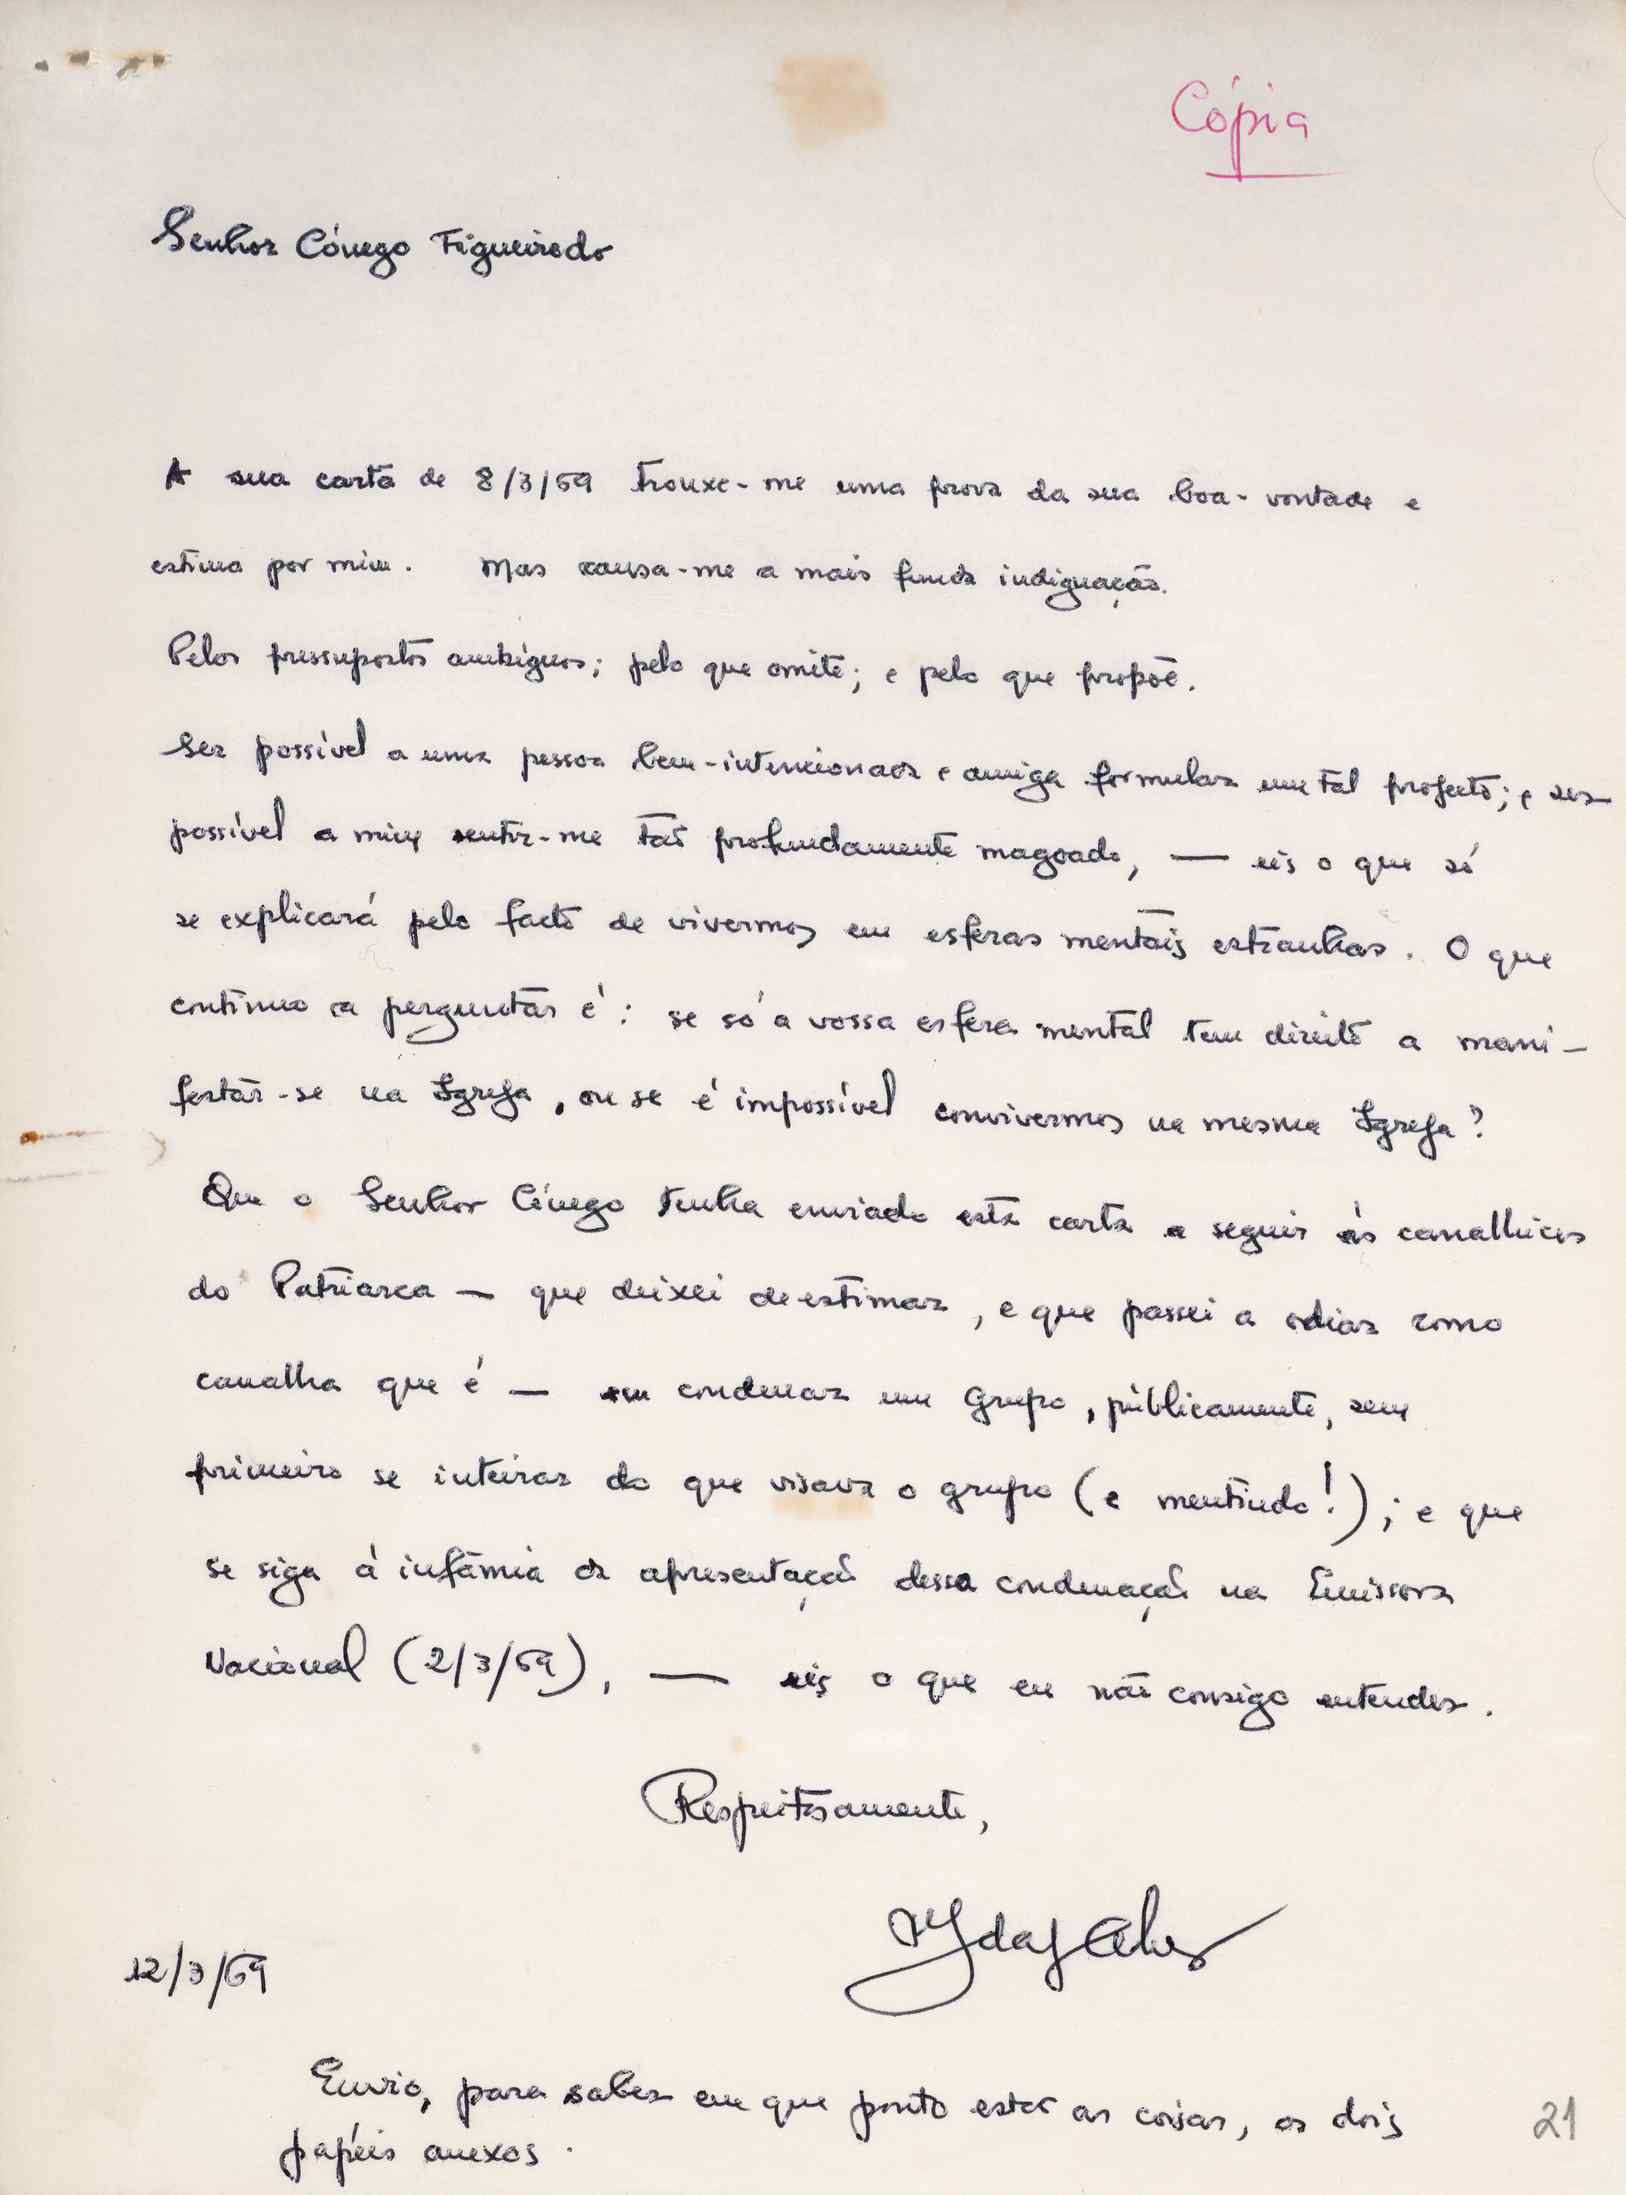 Cópia
Senhor Cónego Figueiredo
A sua carta de 8/3/69 trouxe-me uma prova da sua boa-vontade e
estima por mim. Mas causa-me a mais funda indignação.
Pelos pressupostos ambíguos; pelo que omite; e pelo que propõe.
Ser possível a uma pessoa bem-intencionada e amiga formular um tal projecto; e ser
possível a mim sentir-me tão profundamente magoado, — eis o que só
se explicará pelo facto de vivermos em esferas mentais estranhas. O que
continuo a perguntar é: se só a vossa esfera mental tem direito a mani-
festar-se na Igreja, ou se é impossível convivermos na mesma Igreja?
Que o Senhor Cónego tenha enviado esta carta a seguir às canalhices
do Patriarca — que deixei de estimar, e que passei a odiar como
canalha que é — em condenar um grupo, públicamente, sem
primeiro se inteirar do que visava o grupo (e mentindo!); e que
se siga à infâmia da apresentação dessa condenação na Emissora
Nacional (2/3/69), — eis o que eu não consigo entender.
Respeitosamente,
Alves
12/3/69
Envio, para saber em que ponto estão as coisas, os dois
papéis anexos.
21